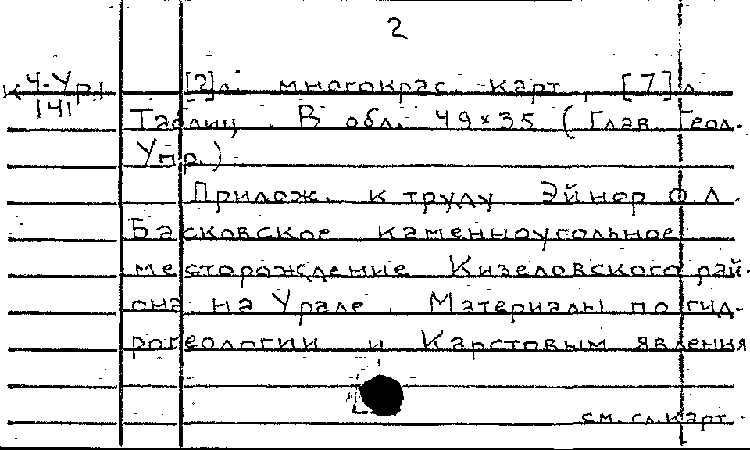 2
К 4-Ур1
141
[2]л. многокрас. карт, [7] л.
Таблиц. В обл. 49×35 (Глав. Геол.
Упр.)
Прилож. к труду Эйнор О Л
Басковское каменноугольное
месторождение Кизеловского рай-
она на Урале. Материалы по гид-
рогеологии и карстовым явления
см. сл. карт.